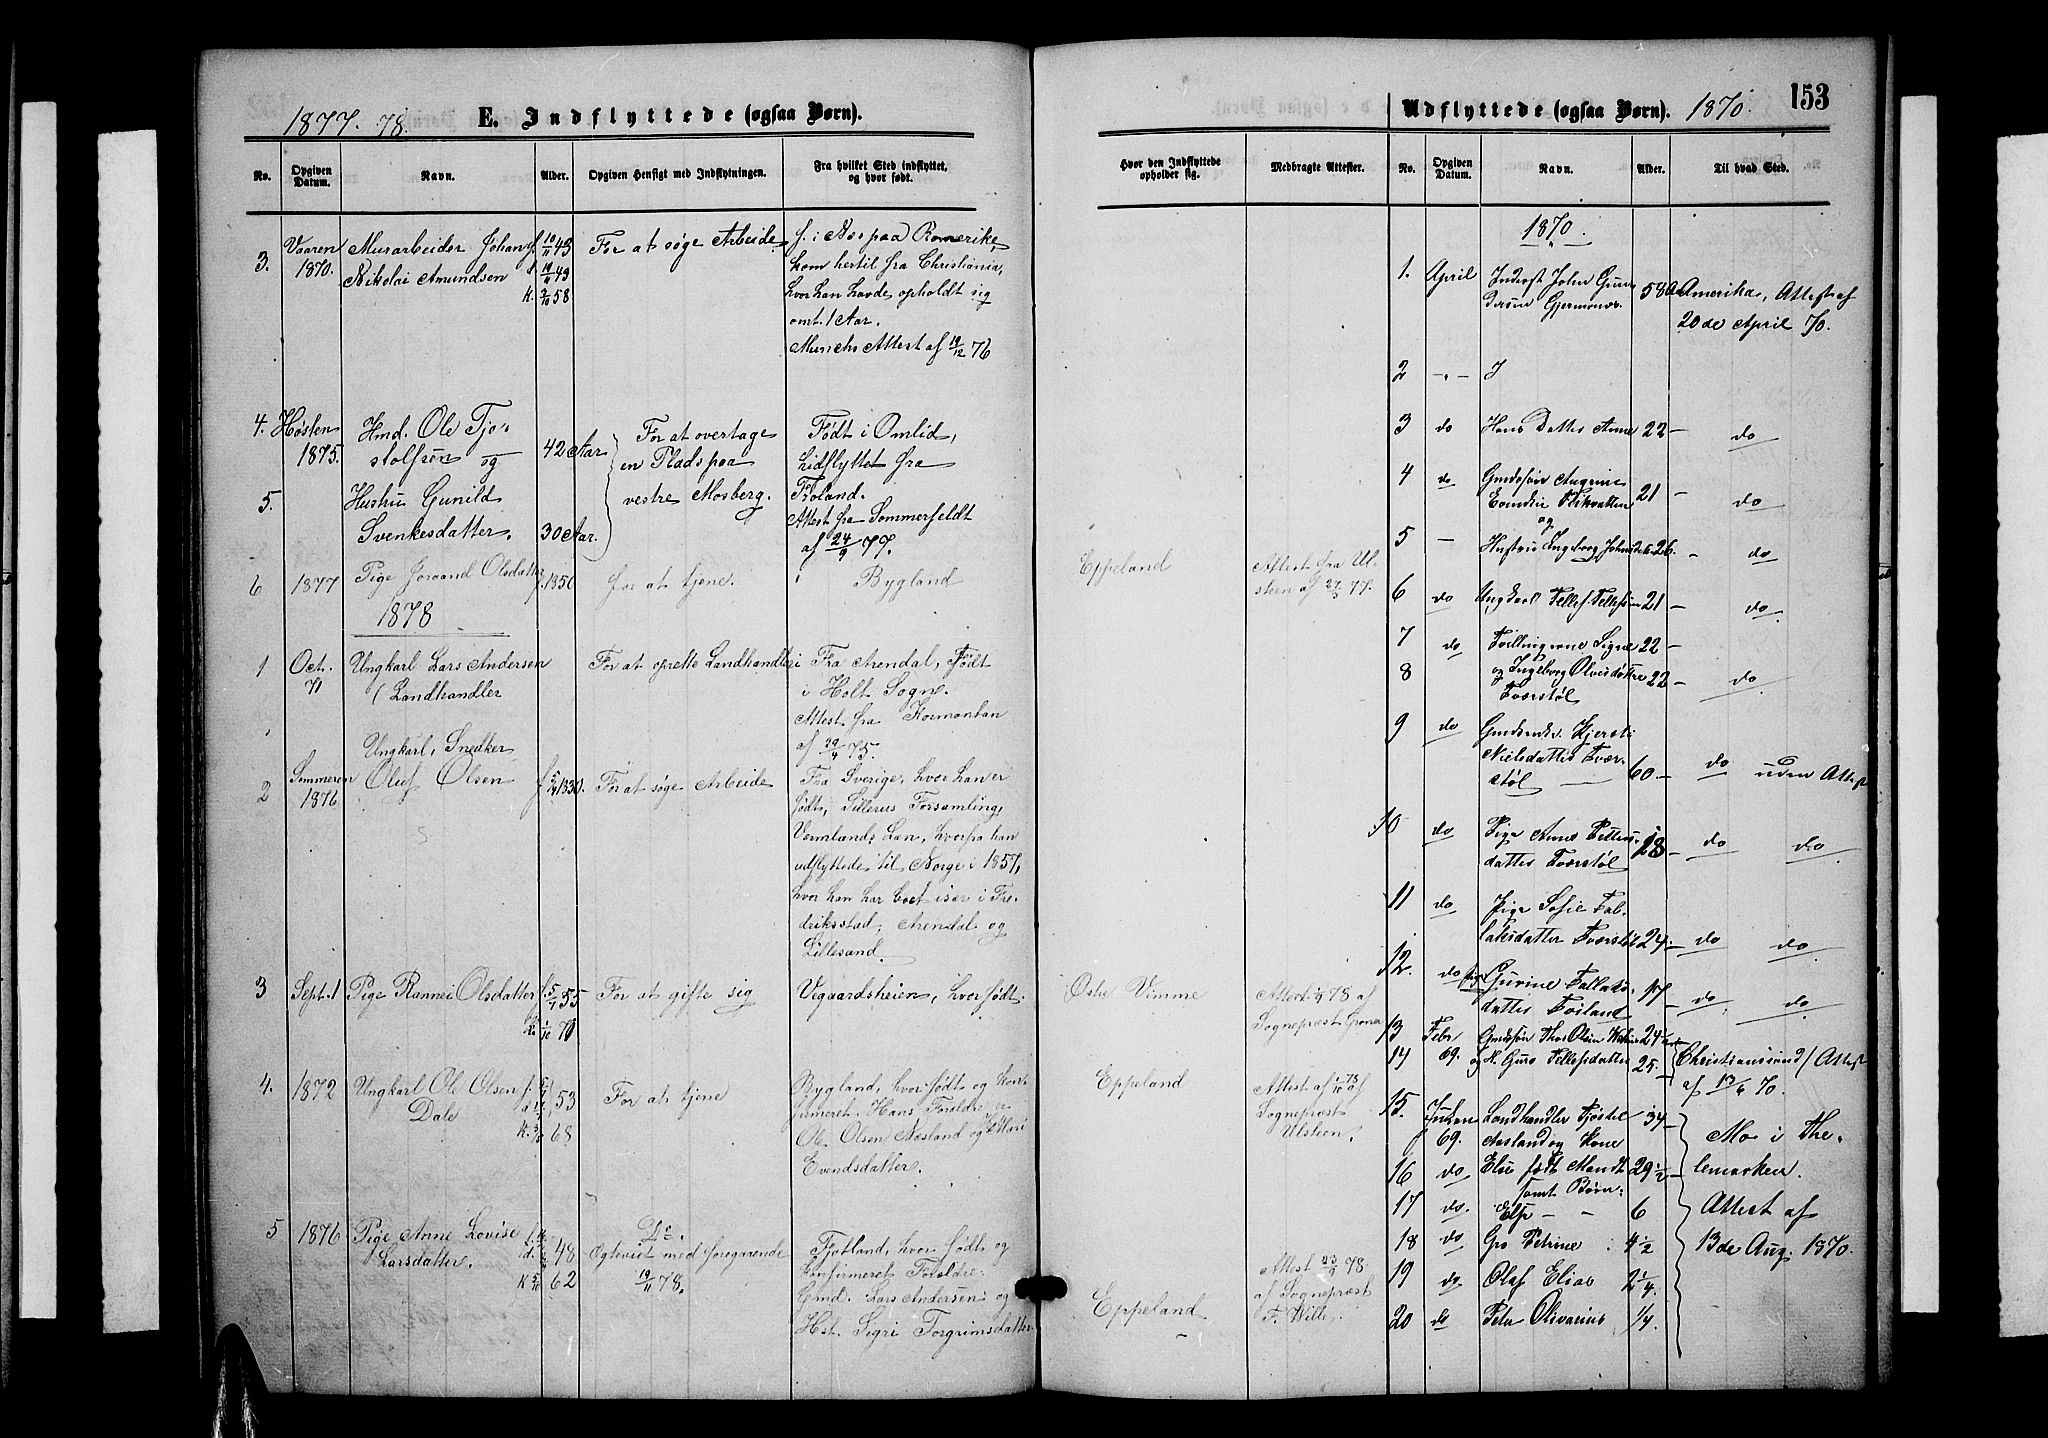 1877. 78.
E. Indflyttede (ogsaa Børn).
No.
Opgiven Datum.
Navn.
Alder.
Opgiven Hensigt med Indflytningen.
Fra hvilket Sted indflyttet, og hvor født.
3.
Vaaren
1870.
Murarbeider Johan
Nikolai Amundsen
f. 10/11 43
10/11 43
K. 2/10 58
For at søge Arbeide
f. i Næs paa Romerike,
kom hertil fra Christiania,
hvor han havde opholdt sig
omt. 1 Aar.
Munchs Attest af 19/12 76
4.
Høsten
1875.
Hmd. Ole Tjo-
stolfsøn og
42 Aar
For at overtage
en Plads paa
vestre Mosberg.
Født i Omlid,
hidflyttet fra
Froland.
Attest fra Sommerfeldt
af 24/9 77.
5.
Hustru Gunild
Svenkesdatter.
30 Aar.
6
1877
Pige Joraand Olsdatter
f. 1850
for at tjene.
Bygland
1878
1
Oct.
71
Ungkarl Lars Andersen
(Landhandler
For at oprette Landhandleri
Fra Arendal, Født
i Holt Sogn.
Attest fra Kormontan
af 29/4 75.
2
Sommeren
1876
Ungkarl, Snedker
Oluf Olsen
For at søge Arbeide
Fra Sverige, hvor han er
født, Sillerus Forsamling,
Vermlands Län, hvorfra han
udflyttede til Norge i 1857,
hvor han har boet især i Fre-
driksstad, Arendal og
Lillesand.
3
Sept. 1
Pige Rannei Olsdatter
f. 5/7 55
K. 1/10 71
For at gifte sig
Vegaardsheien, hvor født.
4.
1872
Ungkarl Ole Olsen
Dale
53
68
For at tjene
Bygland, hvor født og kon-
firmeret. Hans Forældre er
Ole Olsen Næsland og Mari
Evendsdatter.
5
1876
Pige Anne Lovise
Larsdatter.
48
62
Do.
Egteviet med foregaaende
19/11 78.
Fjotland, hvor født og
konfirmeret Forældre:
Gmd. Lars Andersen og
Hst. Sigri Torgrimsdatter
153
Udflyttede (ogsaa Børn). 1870.
Hvor den Indflyttede opholder sig.
Medbragte Attester.
No.
Opgiven Datum.
Navn.
Alder.
Til hvad Sted.
Eppeland
Attest fra Ul-
steen af 27/5 77.
Østre Vimme
Attest 1/9 78 af
Sognepræst Grønæ
Eppeland
Attest af 1/10 78 af
Sognepræst
Ulsteen.
Eppeland
Attest 23/9 78.
af Sognepræst
F. Wille
1870.
1.
April
Inderst John Gun-
dersøn Gjermones
58
Amerika, Attest af
20de April 70.
2
-"-
3
do
Hans Datter Anne
22 -
do
4
do
Gmdssøn
21 -
do
og
5
-
Hustru Ingeborg
26. -
do
6
do
Ungkarl Tellef Tellefsøn
21 -
do
7
do
Tvillingerne Signe
22 -
8
og Ingeborg Olvesdøtre
Tværstøl
22 -
do
9
do
Kjersti
Nielsdatter Tvær-
støl
60 -
do uden Attest
10
do
Pige Anne
datter Tværstøl
do do
11
do
Pige Sofie Fal-
laksdatter Tværstøl
24. -
do do
12.
do
Pige Gurine Fallaks-
datter
17 -
do do
13
Febr
69.
Gmdssøn Thor Olsen
24
Christianssund / Attest
af 13/6 70.
14
og H. Guro Tellefsdatter
25. -
15.
69.
Landhandler Tjøstel
Aasland og Kone
34 -
Mo i The-
lemarken.
Attest af
13de Aug. 1870.
16
do
Else født Mandt
29 1/2
samt Børn:
17
do.
Else - -
6
18
do
Gro Petrine
4 1/2
19
do
Olaf Elias
2 1/4.
20
do
Peter Olivarius
1/4.